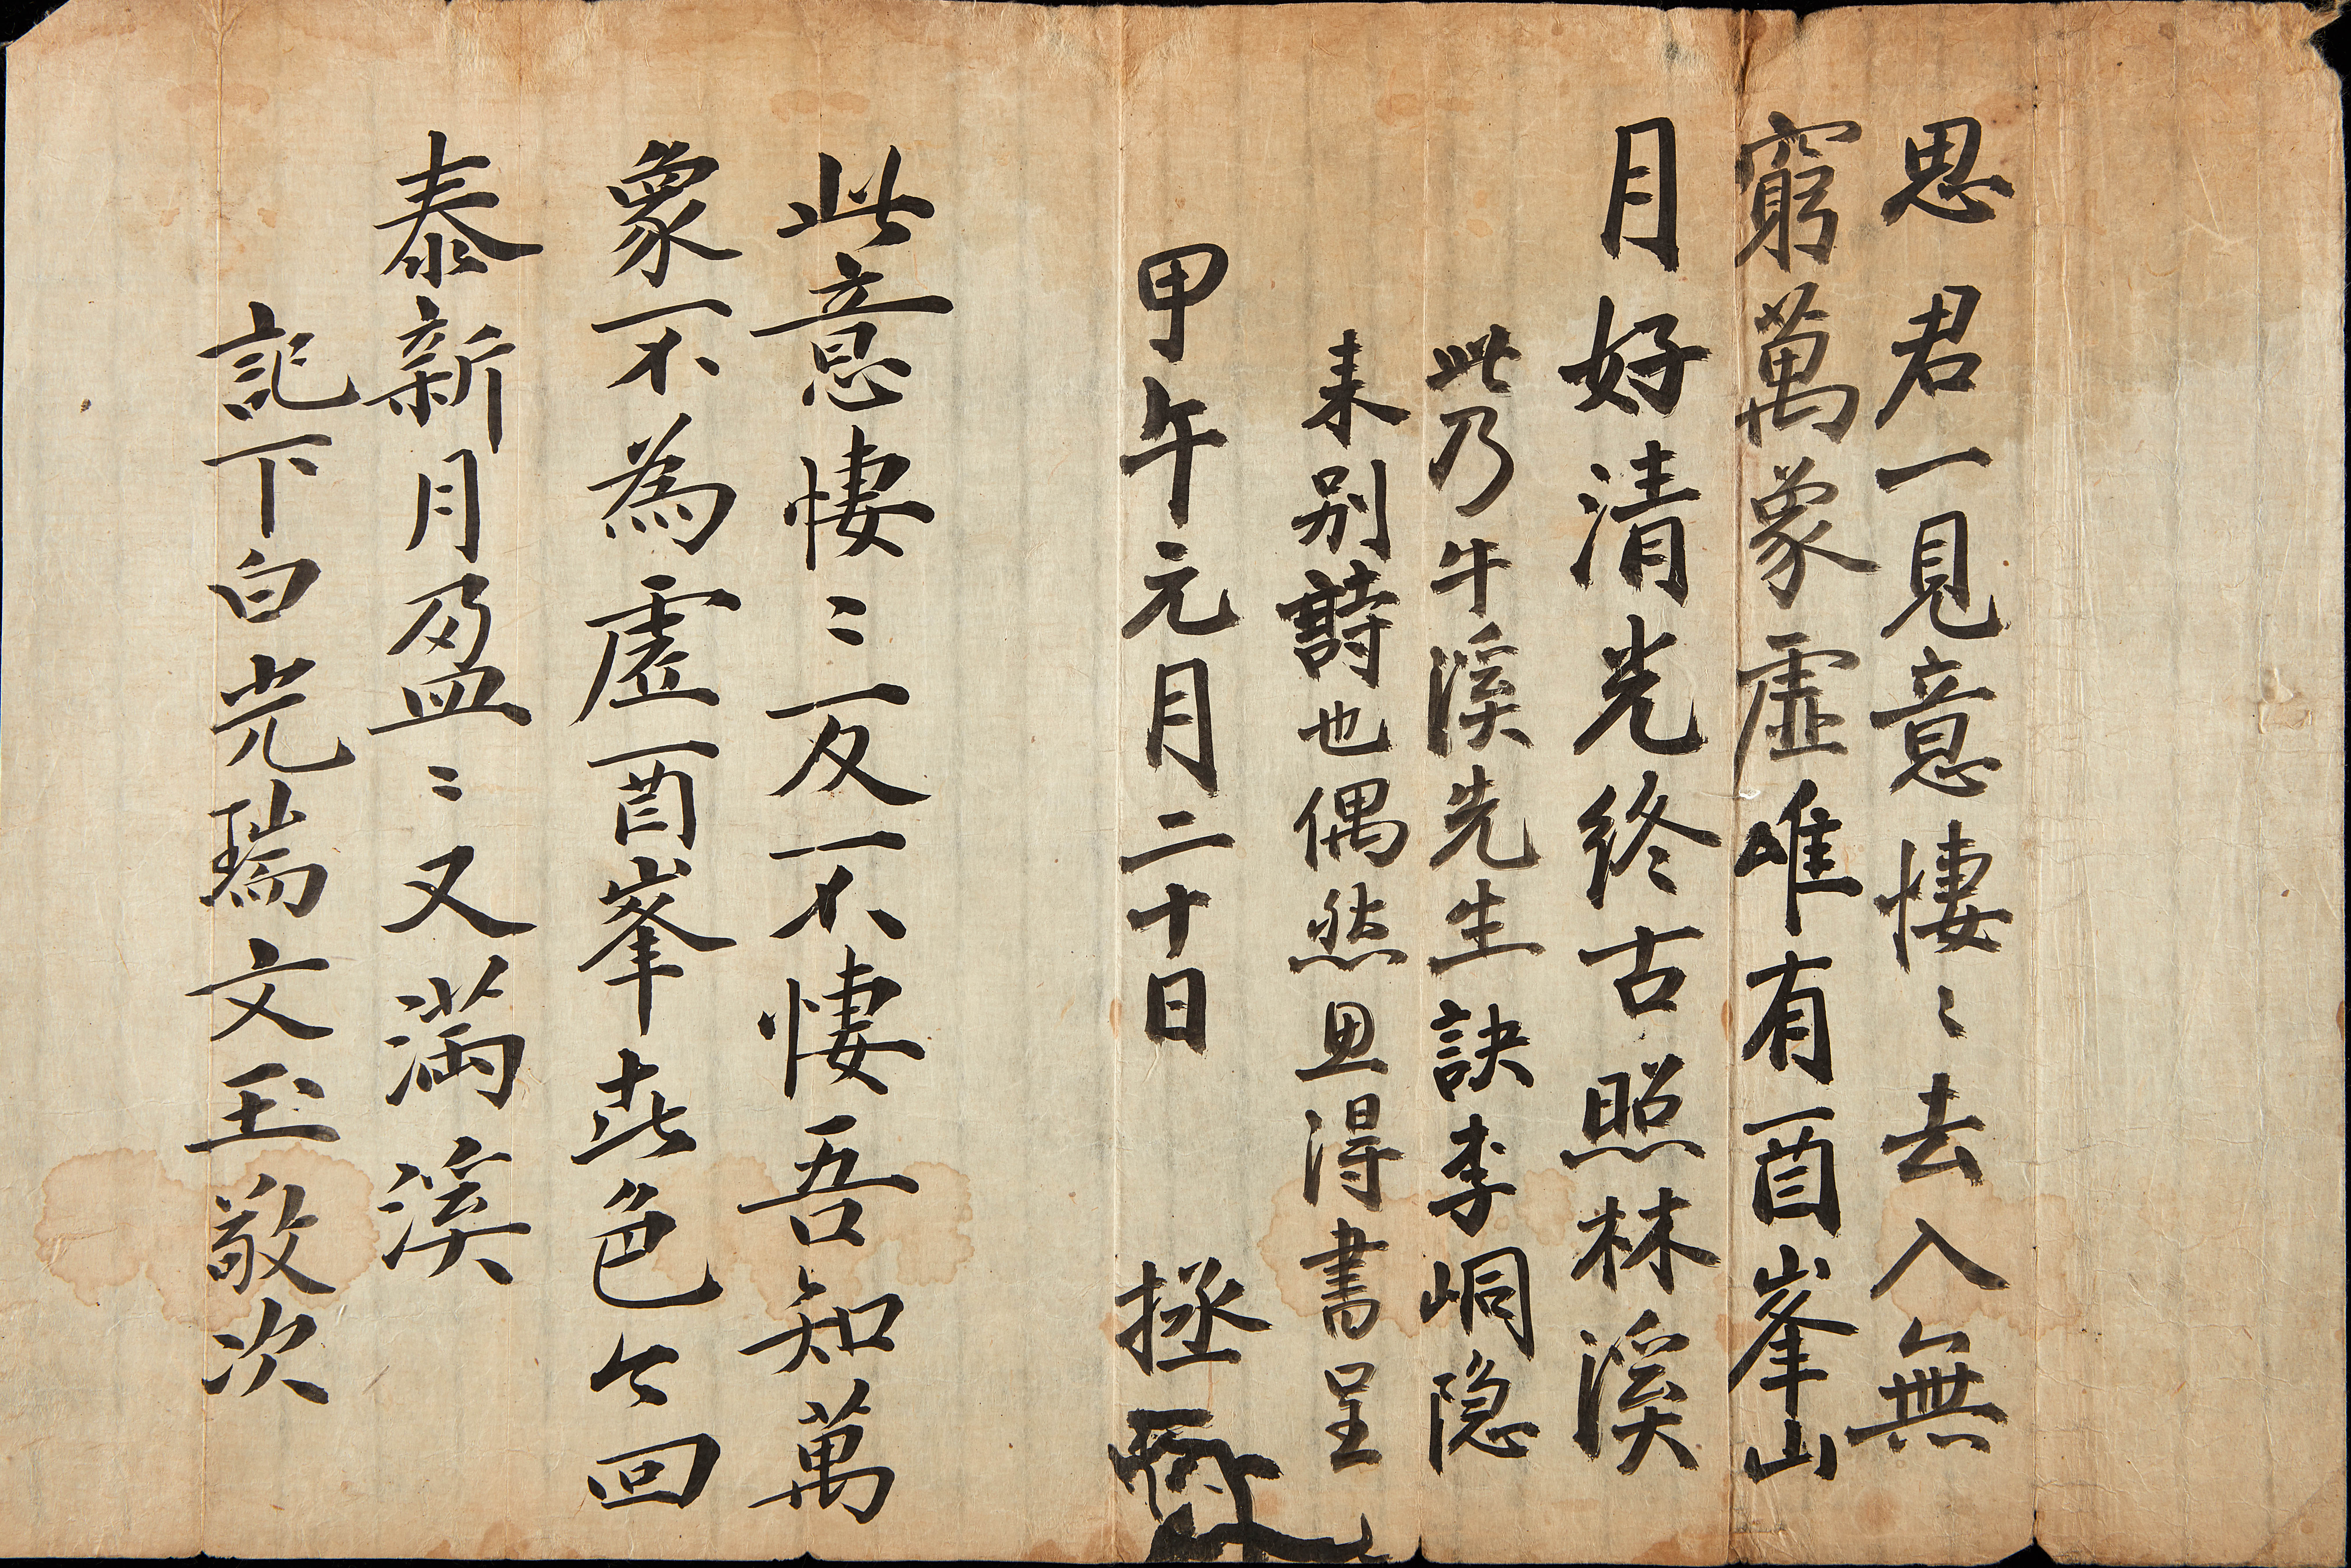 思君一見意悽〻去入無
窮萬象虛唯有酉峯山
月好清光終古照林溪
此乃牛溪先生訣李峒隐
来別詩也偶然思得書呈
甲午元月二十日 拯
此意悽〻反不悽吾知萬
象不為虛酉峯喜色今回
泰新月盈〻又滿溪
記下白光瑞文玉敬次